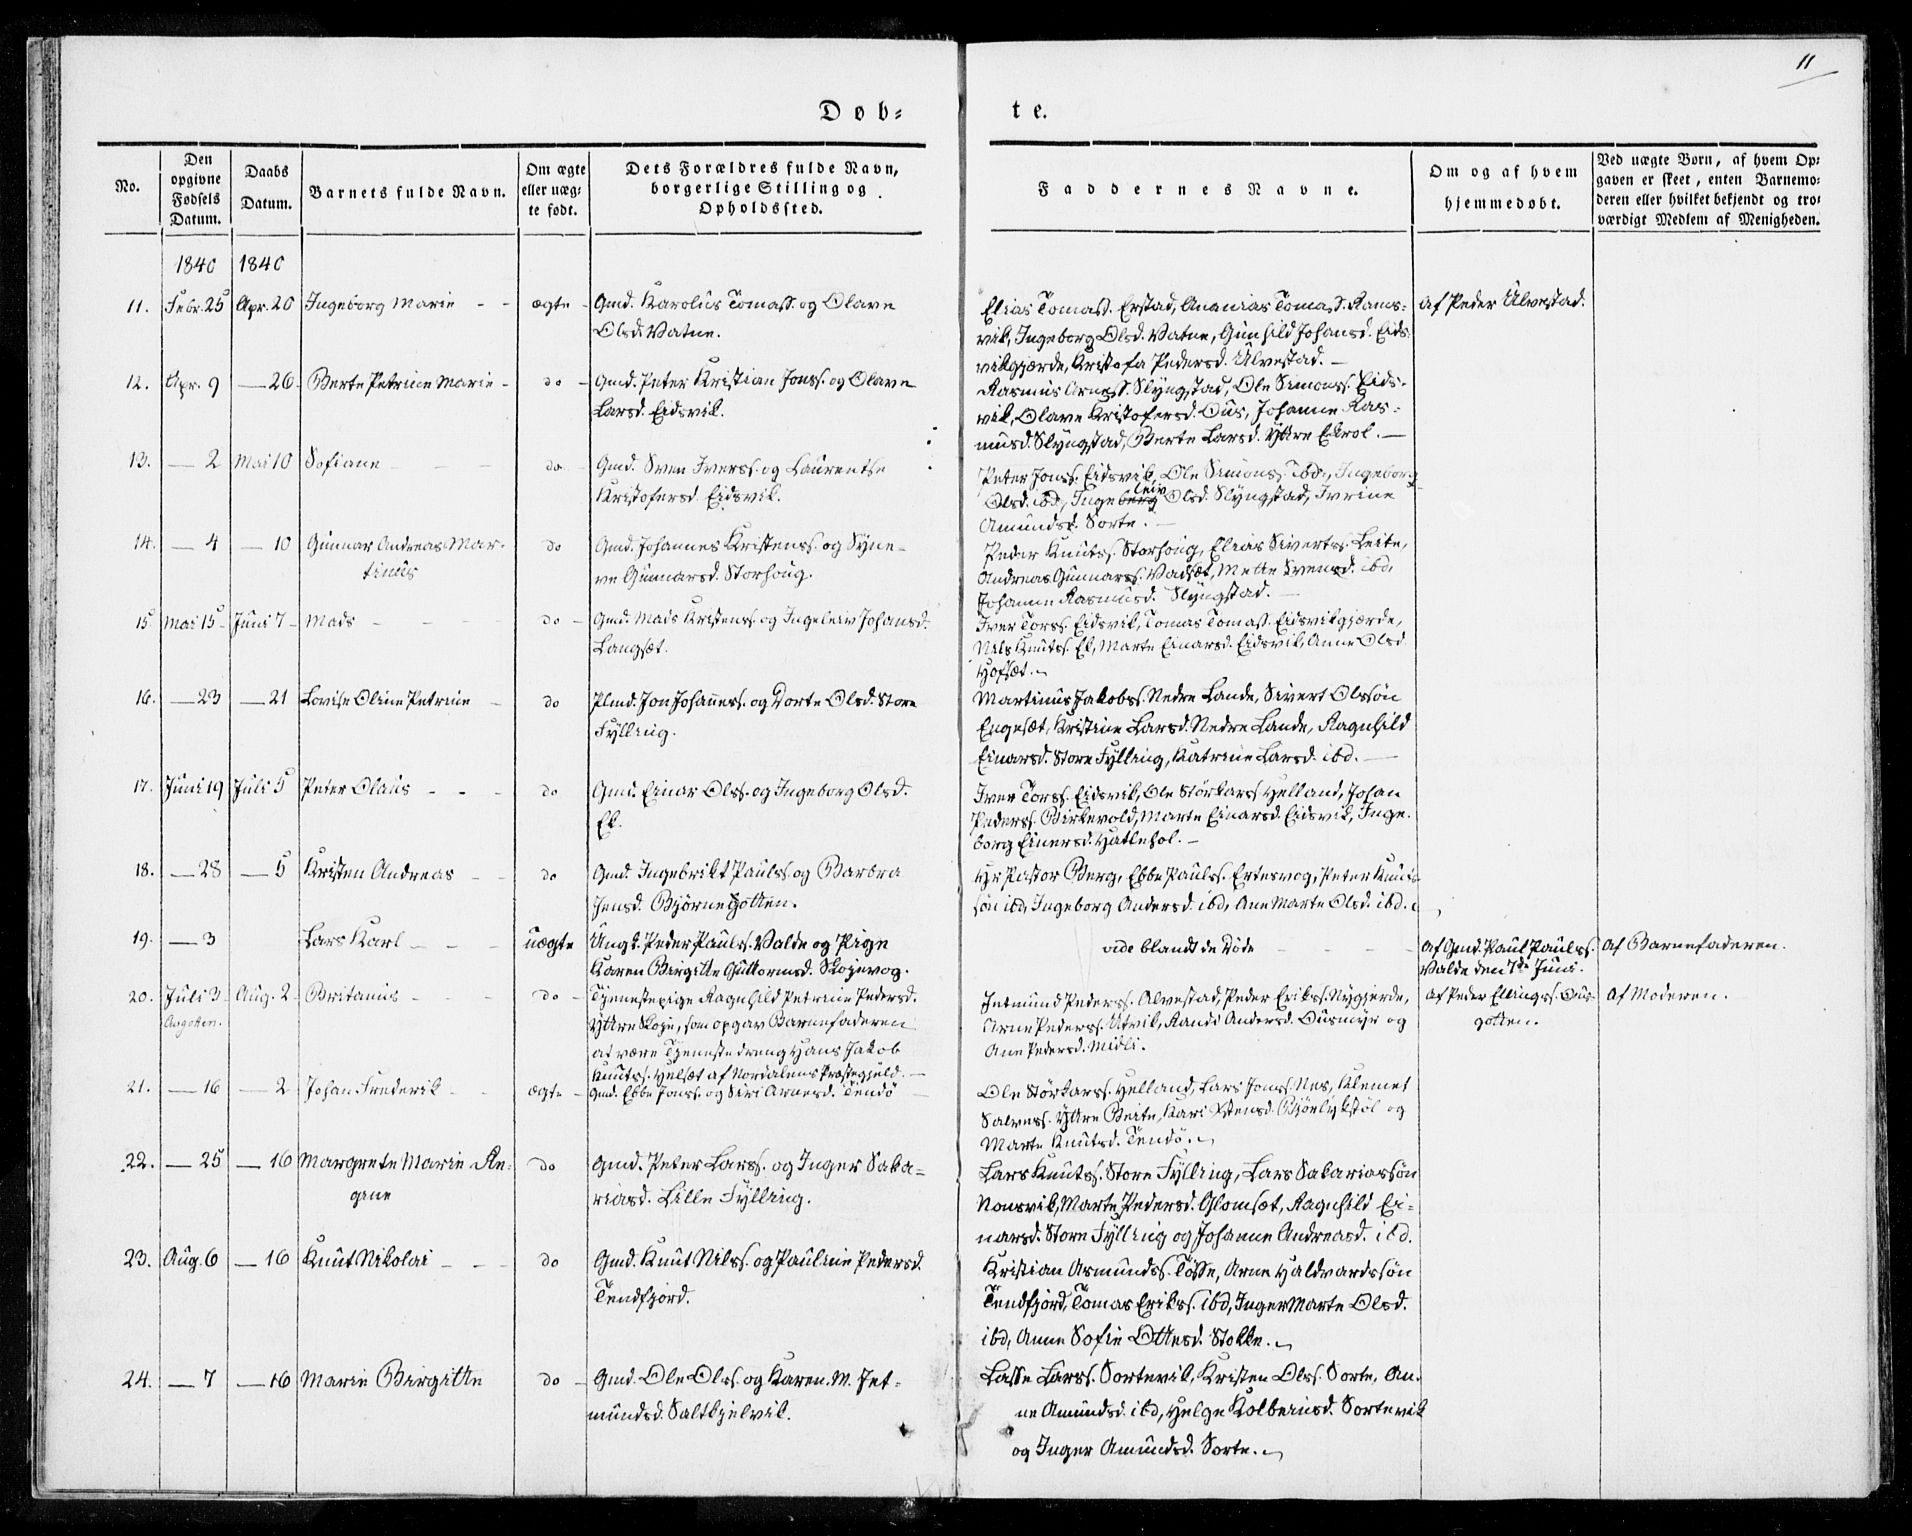 11
Døb=
te.
No.
Den opgivne Fødsels Datum.
Daabs Datum.
Barnets fulde Navn.
Om ægte eller uæg= te født.
Dets Forældres fulde Navn, borgerlige Stilling og Opholdssted.
Faddernes Navne.
Om og af hvem hjemmedøbt.
Ved uægte Børn, af hvem Op= gaven er skeet, enten Barnemo= deren eller hvilket bekjendt og tro= værdigt Medlem af Menigheden.
1840 1840
11. Febr. 25 Apr. 20 Ingeborg Marie - - ægte - Gmd. Karolus Tomass. og Olave
Olsd. Vatne.
Elias Tomass. Erstad, Ananias Tomass. Rams=
vik, Ingeborg Olsd. Vatne, Gunhild Johansd. Eids=
vikgjærde, Kristofa Pedersd. Ulvestad. -
af Peder Ulvestad.
12. Apr. 9 - 26 Berte Petrine Marie - do - Gmd. Peter Kristian Jonss. og Olave
Larsd. Eidsvik.
Rasmus Arness. Slyngstad, Ole Simonss. Eids=
vik, Olave Kristofersd. Ous, Johanne Ras=
musd. Slyngstad, Berte Larsd. Yttre Ekrol. -
13. - 2 Mai 10 Sofiane - - - do - Gmd. Sven Iverss. og Laurentse
Kristofersd. Eidsvik.
Peter Jonss. Eidsvik, Ole Simonss. ibd., Ingeborg
Olsd. ibd, Ingeberg leiv Olsd. Slyngstad, Ivrine
Amundsd. Sorte. -
14. - 4 - 10 Gunnar Andreas Mar=
tinus
do Gmd. Johannes Kristenss. og Syne=
ve Gunnarsd. Storhoug.
Peder Knutss. Storhoug, Elias Sivertss. Leite,
Andreas Gunnarss. Vadset, Mette Svensd. ibd,
Johanne Rasmusd. Slyngstad. -
15 Mai 15 - Juni 7 - Mads - - - do - Gmd. Mads Kristenss. og Ingeleiv Johansd.
Langsæt.
Iver Torss. Eidsvik, Tomas Tomass. Eidsvikgjærde,
Nils Knutss. Ek, Marte Einarsd. Eidsvik, Anne Olsd
Hofsæt.
16. - 23 - 21 Lovise Oline Petrine - do Plmd. Jon Johanness. og Dorte Olsd. Store
Fylling.
Martinus Jakobss. Nedre Lande, Sivert Olssøn
Engesæt, Kristine Larsd. Nedre Lande, Ragnhild
Einarsd. Store Fylling, Katrine Larsd. ibd. -
17. Juni 19 Juli 5 Peter Olaus - - - do Gmd. Einar Olss. og Ingeborg Olsd.
Ek.
Iver Torss. Eidsvik, Ole Störkarss Helland, Johan
Pederss. Birkevold, Marte Einarsd. Eidsvik, Inge=
borg Einersd. Hatlehol. -
18. - 28 - 5 Kristen Andreas - - do Gmd. Ingebrikt Paulss. og Barbra
Jensd. Bjørnegotten.
Hr Pastor Berg, Ebbe Paulss. Ertesvog, Peter Knuts
søn ibd, Ingeborg Andersd. ibd, Ane Marte Olsd. ibd.
19. - 3 Lars Karl - - - uægte Ungk. Peder Paulss. Valde og Pige
Karen Birgitte Guttormsd. Skopevog.
vide blandt de Döde - - -
af Gmd. Paul Paulss.
Valde den 7de Juni.
af Barnefaderen.
20. Juli 3 Aug. 2 - Britanus - - - do - Tjenestepige Ragnhild Petrine Pedersd.
Yttre Skope, som opgav Barnefaderen
at være Tjenestedreng Hans Jakob
Knutss. Helsæt af Nordalens Præstegjeld. -
Jetmund Pederss. Alvestad, Peder Erikss. Nygjerde,
Arne Pederss. Utvik, Randi Andersd. Ousmyr og
Ane Pedersd. Midli.
af Peder Ellingss. Ous=
gotten.
af Moderen.
21. - 16 - 2 Johan Frederik - - ægte - Gmd. Ebbe Jonss. og Siri Arnesd. Tendö -
Ole Störkarss. Helland, Lars Jonss. Nes, Klemet
Salvess. Yttre Beite, Kari Stensd. Bjönlykstöl og
Marte Knutsd. Tendö.
22. - 25 - 16 Margrete Marie An=
gane
do Gmd. Peter Larss. og Inger Saka=
riasd. Lille Fylling.
Lars Knutss. Store Fylling, Lars Sakariassøn
Nonsvik, Marte Pedersd. Glomset, Ragnhild Ei=
narsd. Store Fylling og Johanne Andreasd. ibd.
23. Aug. 6 - 16 Knut Nikolai - - - do Gmd. Knut Nilss. og Pauline Pedersd.
Tendfjord.
Kristian Asmundss. Tösse, Arne Haldvardssøn
Tendfjord, Tomas Erikss. ibd, Inger Marte Olsd.
ibd, Anne Sofie Ottesd. Stokke.
24. - 7 - 16 Marie Birgitte do - Gmd. Ole Olss. og Karen. M. Jet=
mundsd. Saltkjelvik.
Lasse Larss. Sortevik, Kristen Olss. Sorte, An=
ne Amundsd. ibd, Helge Kolbeinsd. Sortevik
og Inger Amundsd. Sorte.